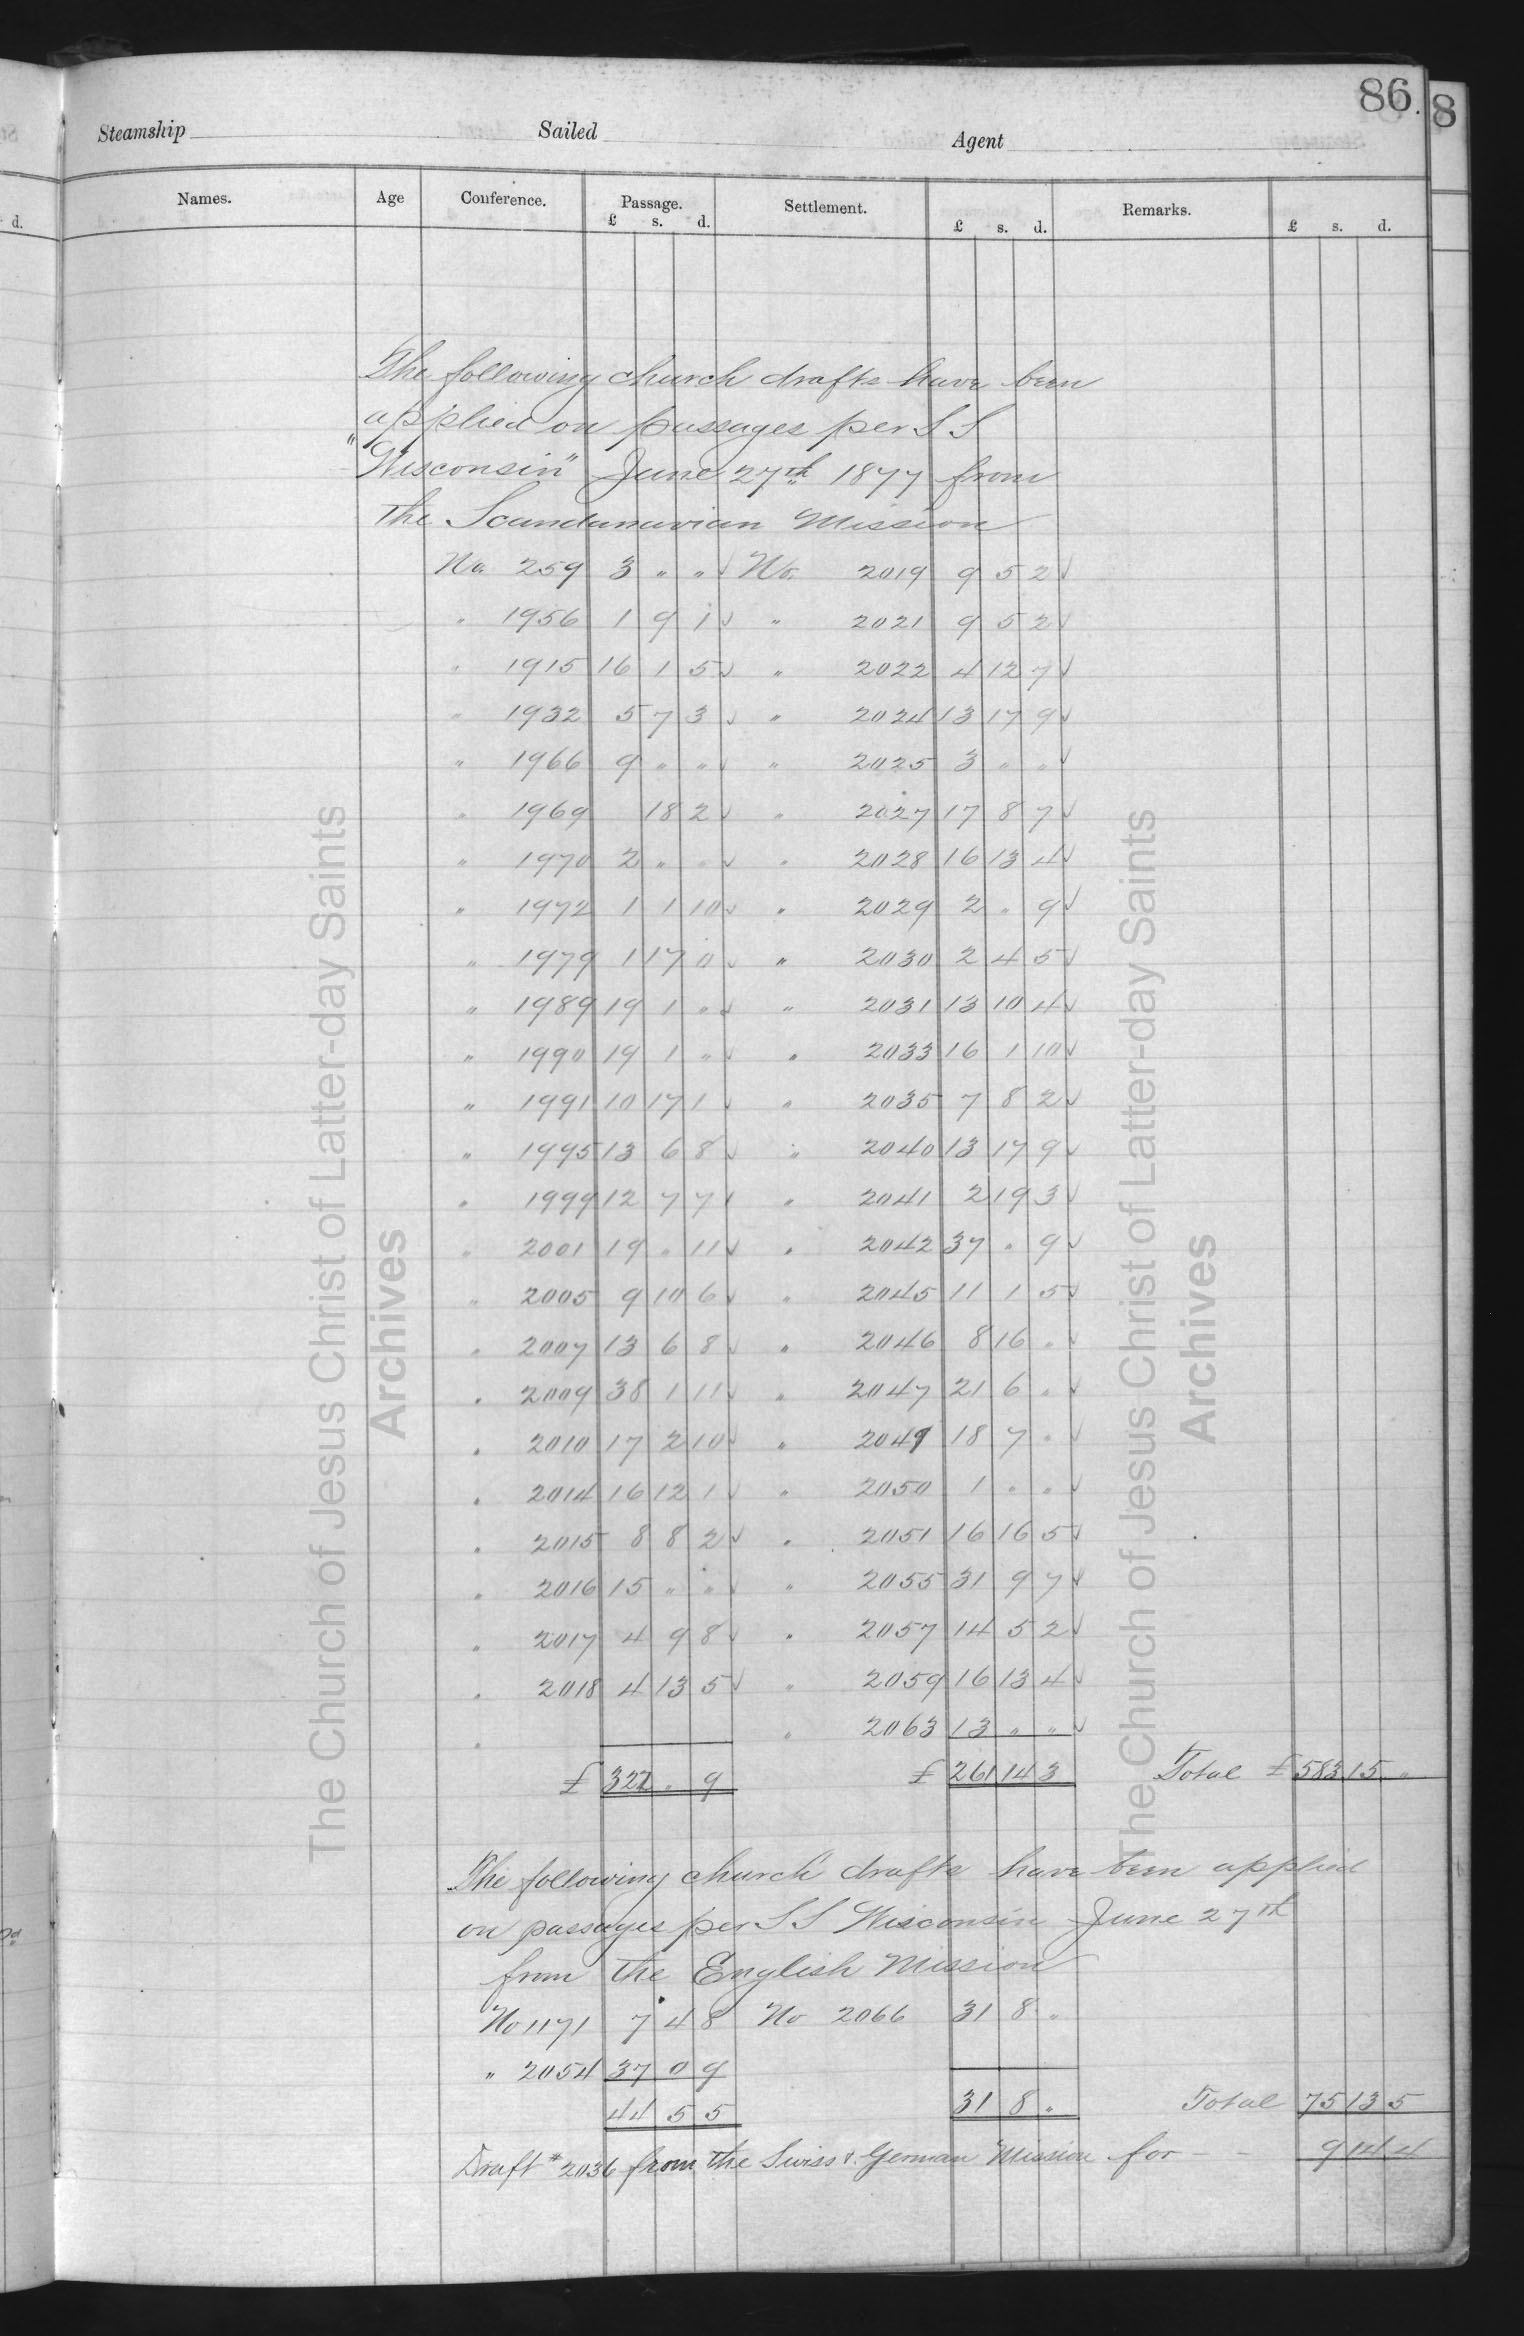 86.
8
Steamship Sailed Agent
Names. Age Conference. Passage. Settlement. Remarks.
d. £ s. d. £ s. d. £ s. d.
The following church drafts have been
applied on passages per S S
"Wisconsin" June 27th 1877 from
the Scandanavian Mission
No. 259 3 " " √ No. 2019 9 5 2 √
" 1956 1 9 1 √ " 2021 9 5 2 √
" 1915 16 1 5 √ " 2022 4 12 7 √
" 1932 5 7 3 √ " 2024 13 17 9 √
" 1966 9 " " √ " 2025 3 " " √
" 1969 18 2 √ " 2027 17 8 7 √
" 1970 2 " " √ " 2028 16 13 4 √
" 1972 1 1 10 √ " 2029 2 " 9 √
" 1979 1 17 0 √ " 2030 2 4 5 √
" 1989 19 1 " √ " 2031 13 10 4 √
" 1990 19 1 " √ " 2033 16 1 10 √
" 1991 10 17 1 √ " 2035 7 8 2 √
" 1995 13 6 8 √ " 2040 13 17 9 √
" 1999 12 7 7 √ " 2041 2 19 3 √
" 2001 19 " 11 √ " 2042 37 " 9 √
" 2005 9 10 6 √ " 2045 11 1 5 √
" 2007 13 6 8 √ " 2046 8 16 " √
" 2009 38 1 11 √ " 2047 21 6 " √
" 2010 17 2 10 √ " 2049 18 7 " √
" 2014 16 12 1 √ " 2050 1 " " √
" 2015 8 8 2 √ " 2051 16 16 5 √
" 2016 15 " " √ " 2055 31 9 7 √
" 2017 4 9 8 √ " 2057 14 5 2 √
" 2018 4 13 5 √ " 2059 16 13 4 √
" " 2063 13 " " √
£ 322 " 9 £ 261 14 3 Total £ 583 15 "
The following church drafts have been applied
on passages per S S Wisconsin June 27th
from the English Mission
No 1171 7 4 8 No 2066 31 8 "
" 2054 37 0 9
44 5 5 31 8 " Total 75 13 5
Draft # 2036 from the Swiss & German Mission for - - 9 14 4
The Church of Jesus Christ of Latter-day Saints
Archives
The Church of Jesus Christ of Latter-day Saints
Archives